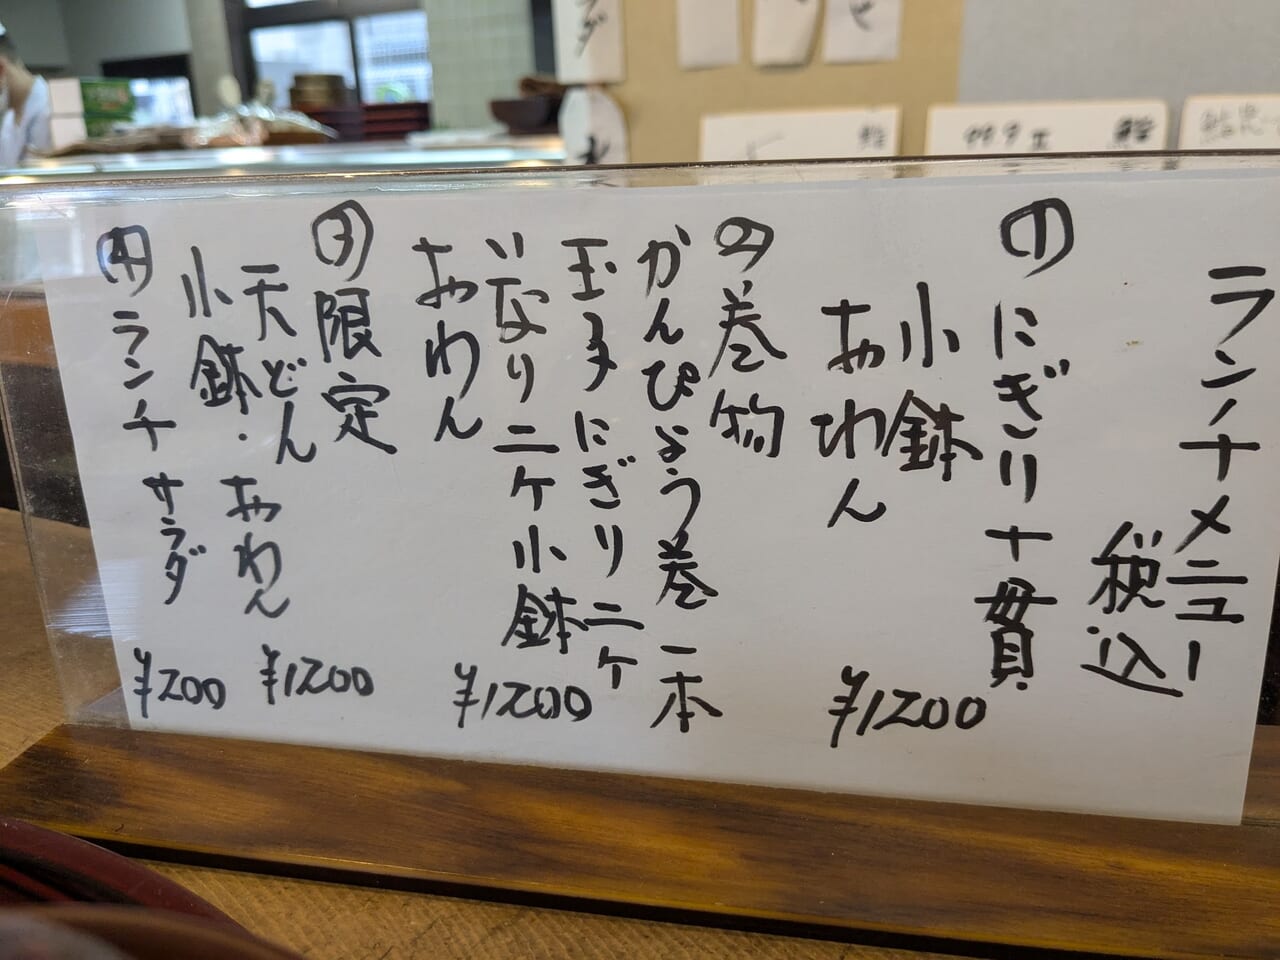 ランチメニュー
税込
① にぎり十貫
小鉢
おわん
¥1200
② 巻物
かんぴょう巻 一本
玉子にぎり 二ケ
いなり二ケ 小鉢
おわん
¥1200
③ 限定
天どん
小鉢・おわん
¥1200
④ ランチサラダ
¥200